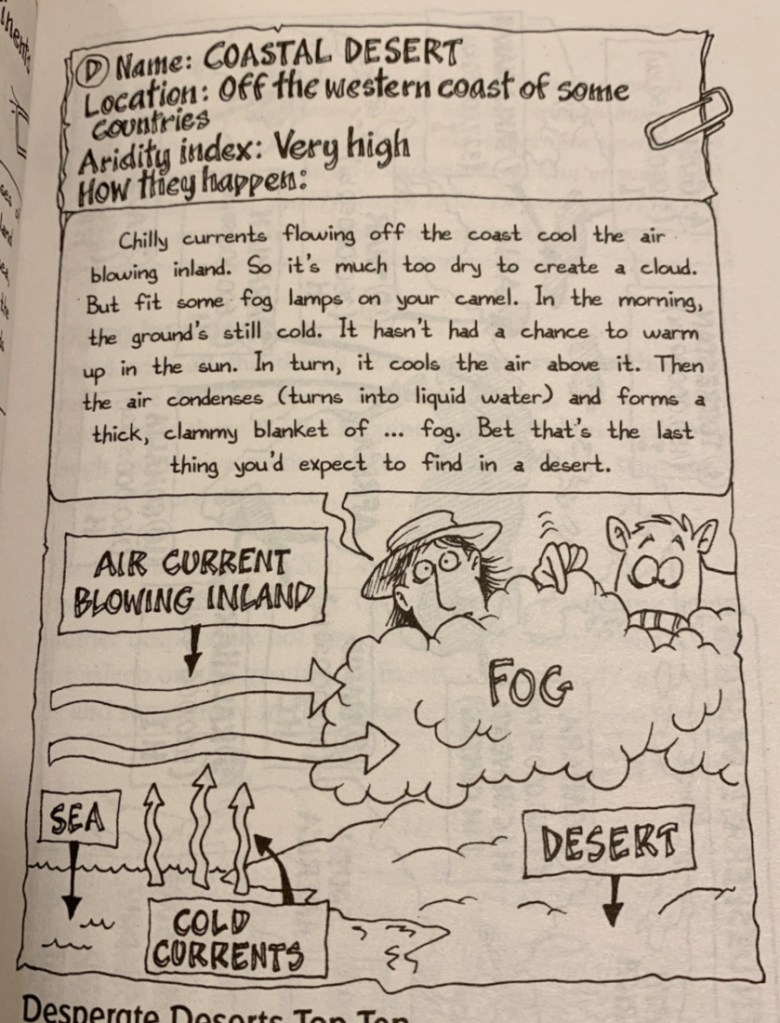 Ⓓ Name: COASTAL DESERT
Location: Off the western coast of some
countries
Aridity index: Very high
How they happen:
Chilly currents flowing off the coast cool the air
blowing inland. So it's much too dry to create a cloud.
But fit some fog lamps on your camel. In the morning,
the ground's still cold. It hasn't had a chance to warm
up in the sun. In turn, it cools the air above it. Then
the air condenses (turns into liquid water) and forms a
thick, clammy blanket of ... fog. Bet that's the last
thing you'd expect to find in a desert.
AIR CURRENT
BLOWING INLAND
FOG
SEA
DESERT
COLD
CURRENTS
Desperate Deserts Top Ten